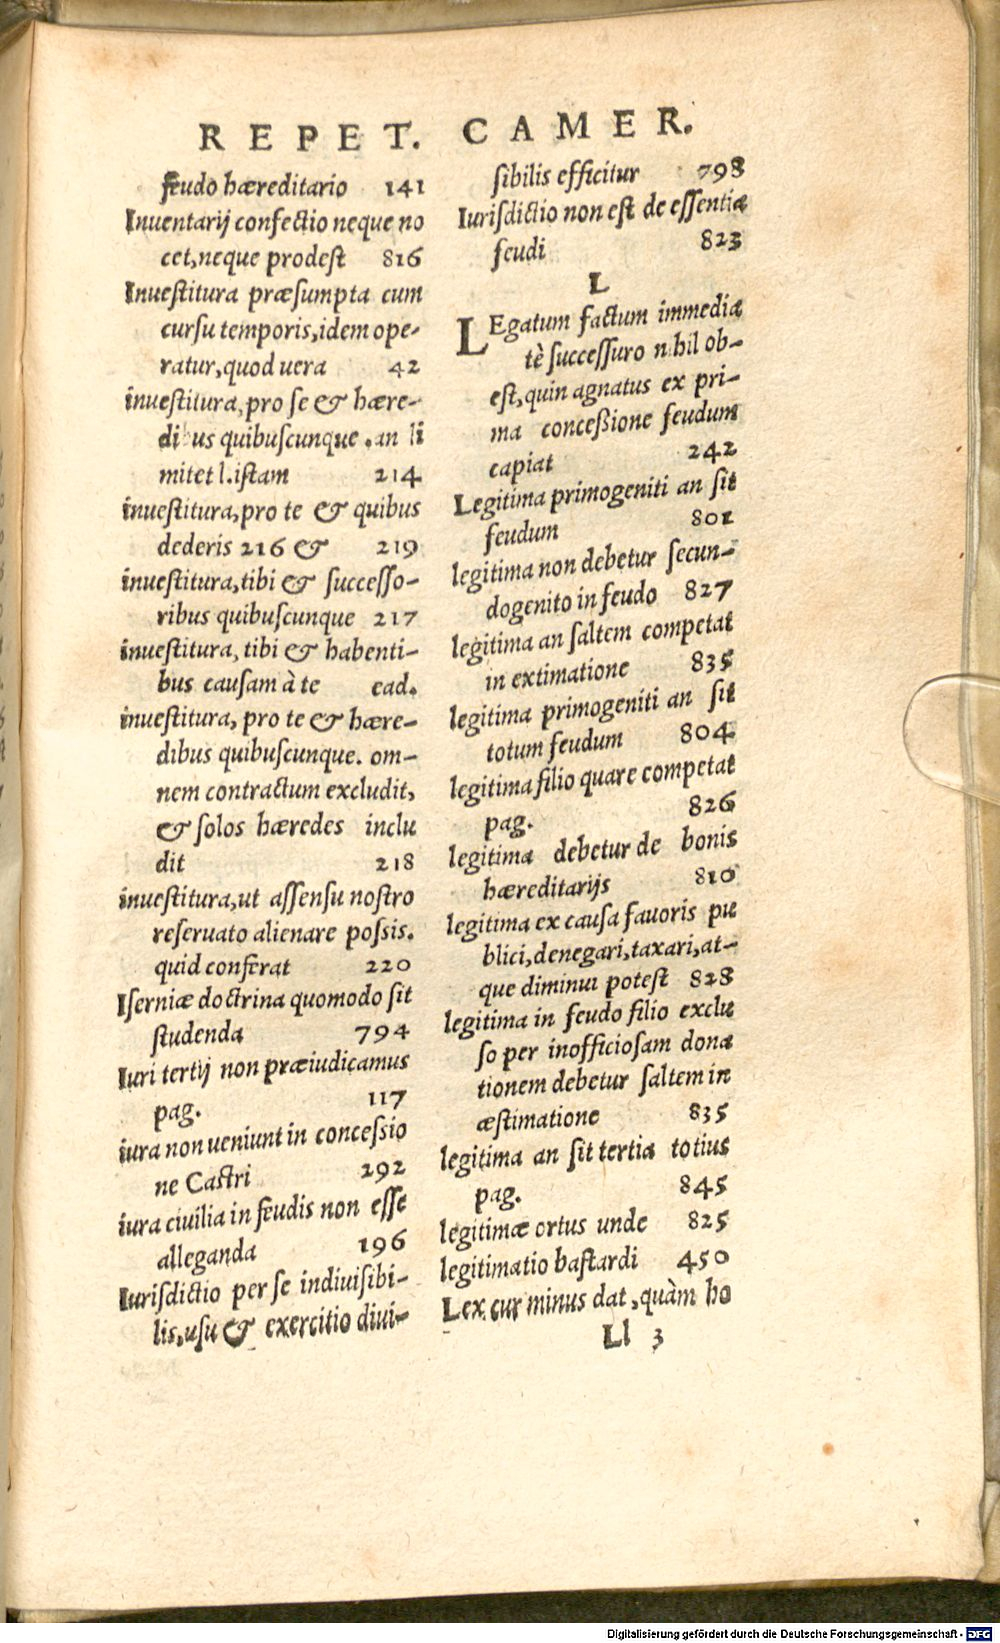 REPET. CAMER.
feudo hæreditario 141
Inuentarij confectio neque no
cet, neque prodest 816
Inuestitura præsumpta cum
cursu temporis, idem ope-
ratur, quod uera 42
inuestitura, pro se & hære-
dibus quibuscunque. an li
mitet l. istam 214
inuestitura, pro te & quibus
dederis 216 & 219
inuestitura, tibi & successo-
ribus quibuscunque 217
inuestitura, tibi & habenti-
bus causam à te ead.
inuestitura, pro te & hære-
dibus quibuscunque. om-
nem contractum excludit,
& solos hæredes inclu
dit 218
inuestitura, ut assensu nostro
reseruato alienare possis.
quid conferat 220
Iserniæ doctrina quomodo sit
studenda 794
Iuri tertij non præiudicamus
pag. 117
iura non ueniunt in concessio
ne Castri 292
iura ciuilia in feudis non esse
alleganda 196
Iurisdictio per se indiuisibi-
lis, usu & exercitio diui-
sibilis efficitur 798
Iurisdictio non est de essentia
feudi 823
L
LEgatum factum immedia
tè successuro nihil ob-
est, quin agnatus ex pri-
ma concessione feudum
capiat 242
Legitima primogeniti an sit
feudum 801
legitima non debetur secun-
dogenito in feudo 827
legitima an saltem competat
in extimatione 835
legitima primogeniti an sit
totum feudum 804
legitima filio quare competat
pag. 826
legitima debetur de bonis
hæreditarijs 810
legitima ex causa fauoris pu
blici, denegari, taxari, at-
que diminui potest 828
legitima in feudo filio exclu
so per inofficiosam dona
tionem debetur saltem in
æstimatione 835
legitima an sit tertia totius
pag. 845
legitimæ ortus unde 825
legitimatio bastardi 450
Lex cur minus dat, quàm ho
Ll 3
Digitalisierung gefördert durch die Deutsche Forschungsgemeinschaft - DFG